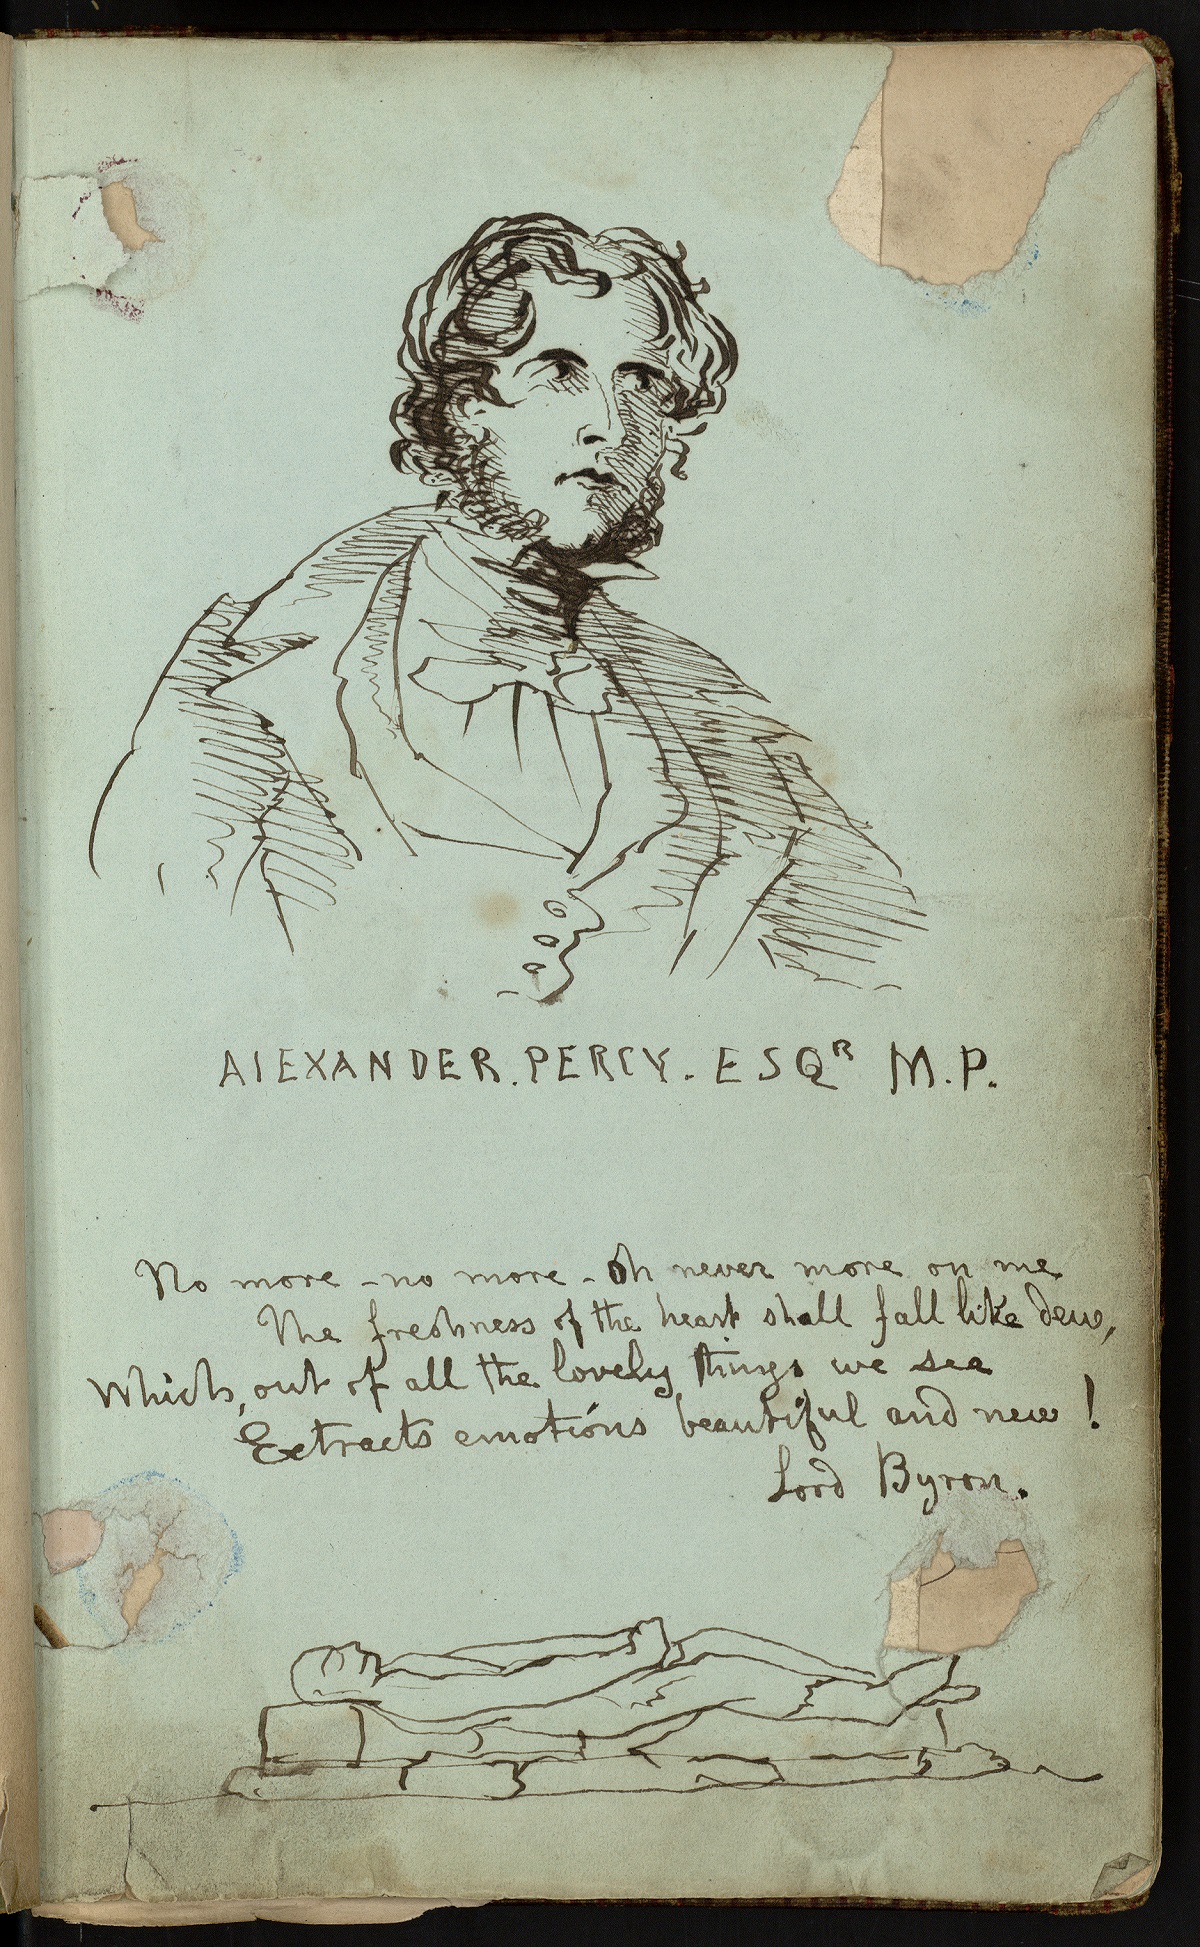 ALEXANDER. PERCY. ESQR M.P.
No more - no more - Oh never more on me
The freshness of the heart shall fall like dew,
Which, out of all the lovely things we see
Extracts emotions beautiful and new!
Lord Byron.